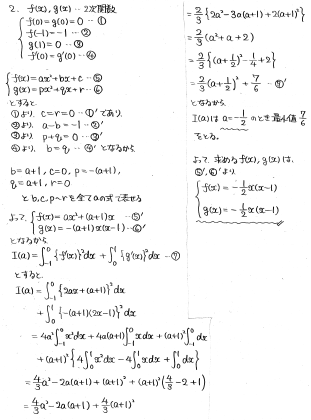 2. f(x), g(x) … 2次関数
f(0)=g(0)=0 … ①
f(-1)=-1 … ②
g(1)=0 … ③
f'(0)=g'(0) … ④
f(x)=ax²+bx+c … ⑤
g(x)=px²+qx+r … ⑥
とすると
①より c=r=0 … ①' であり、
②より a-b=-1 … ②'
③より p+q=0 … ③'
④より b=q … ④' となるから
b=a+1, c=0, p=-(a+1),
q=a+1, r=0
と b, c, p~r を全てaの式で表せる
よって f(x)=ax²+(a+1)x … ⑤'
g(x)=-(a+1)x(x-1) … ⑥'
となるから
I(a)=∫₋₁⁰{f'(x)}²dx + ∫₀¹{g'(x)}²dx … ⑦
とすると.
I(a)=∫₋₁⁰{2ax+(a+1)}²dx
+∫₀¹{-(a+1)(2x-1)}²dx
=4a²∫₋₁⁰x²dx+4a(a+1)∫₋₁⁰xdx+(a+1)²∫₋₁⁰dx
+(a+1)²{4∫₀¹x²dx-4∫₀¹xdx+∫₀¹dx}
=4/3a²-2a(a+1)+(a+1)²+(a+1)²(4/3-2+1)
=4/3a²-2a(a+1)+4/3(a+1)²
=2/3{2a²-3a(a+1)+2(a+1)²}
=2/3(a²+a+2)
=2/3{(a+1/2)²-1/4+2}
=2/3(a+1/2)²+7/6 … ⑦'
となるから
I(a)は a=-1/2 のとき最小値 7/6
をとる。
よって 求める f(x), g(x) は、
⑤', ⑥' より
f(x)=-1/2x(x-1)
g(x)=-1/2x(x-1)